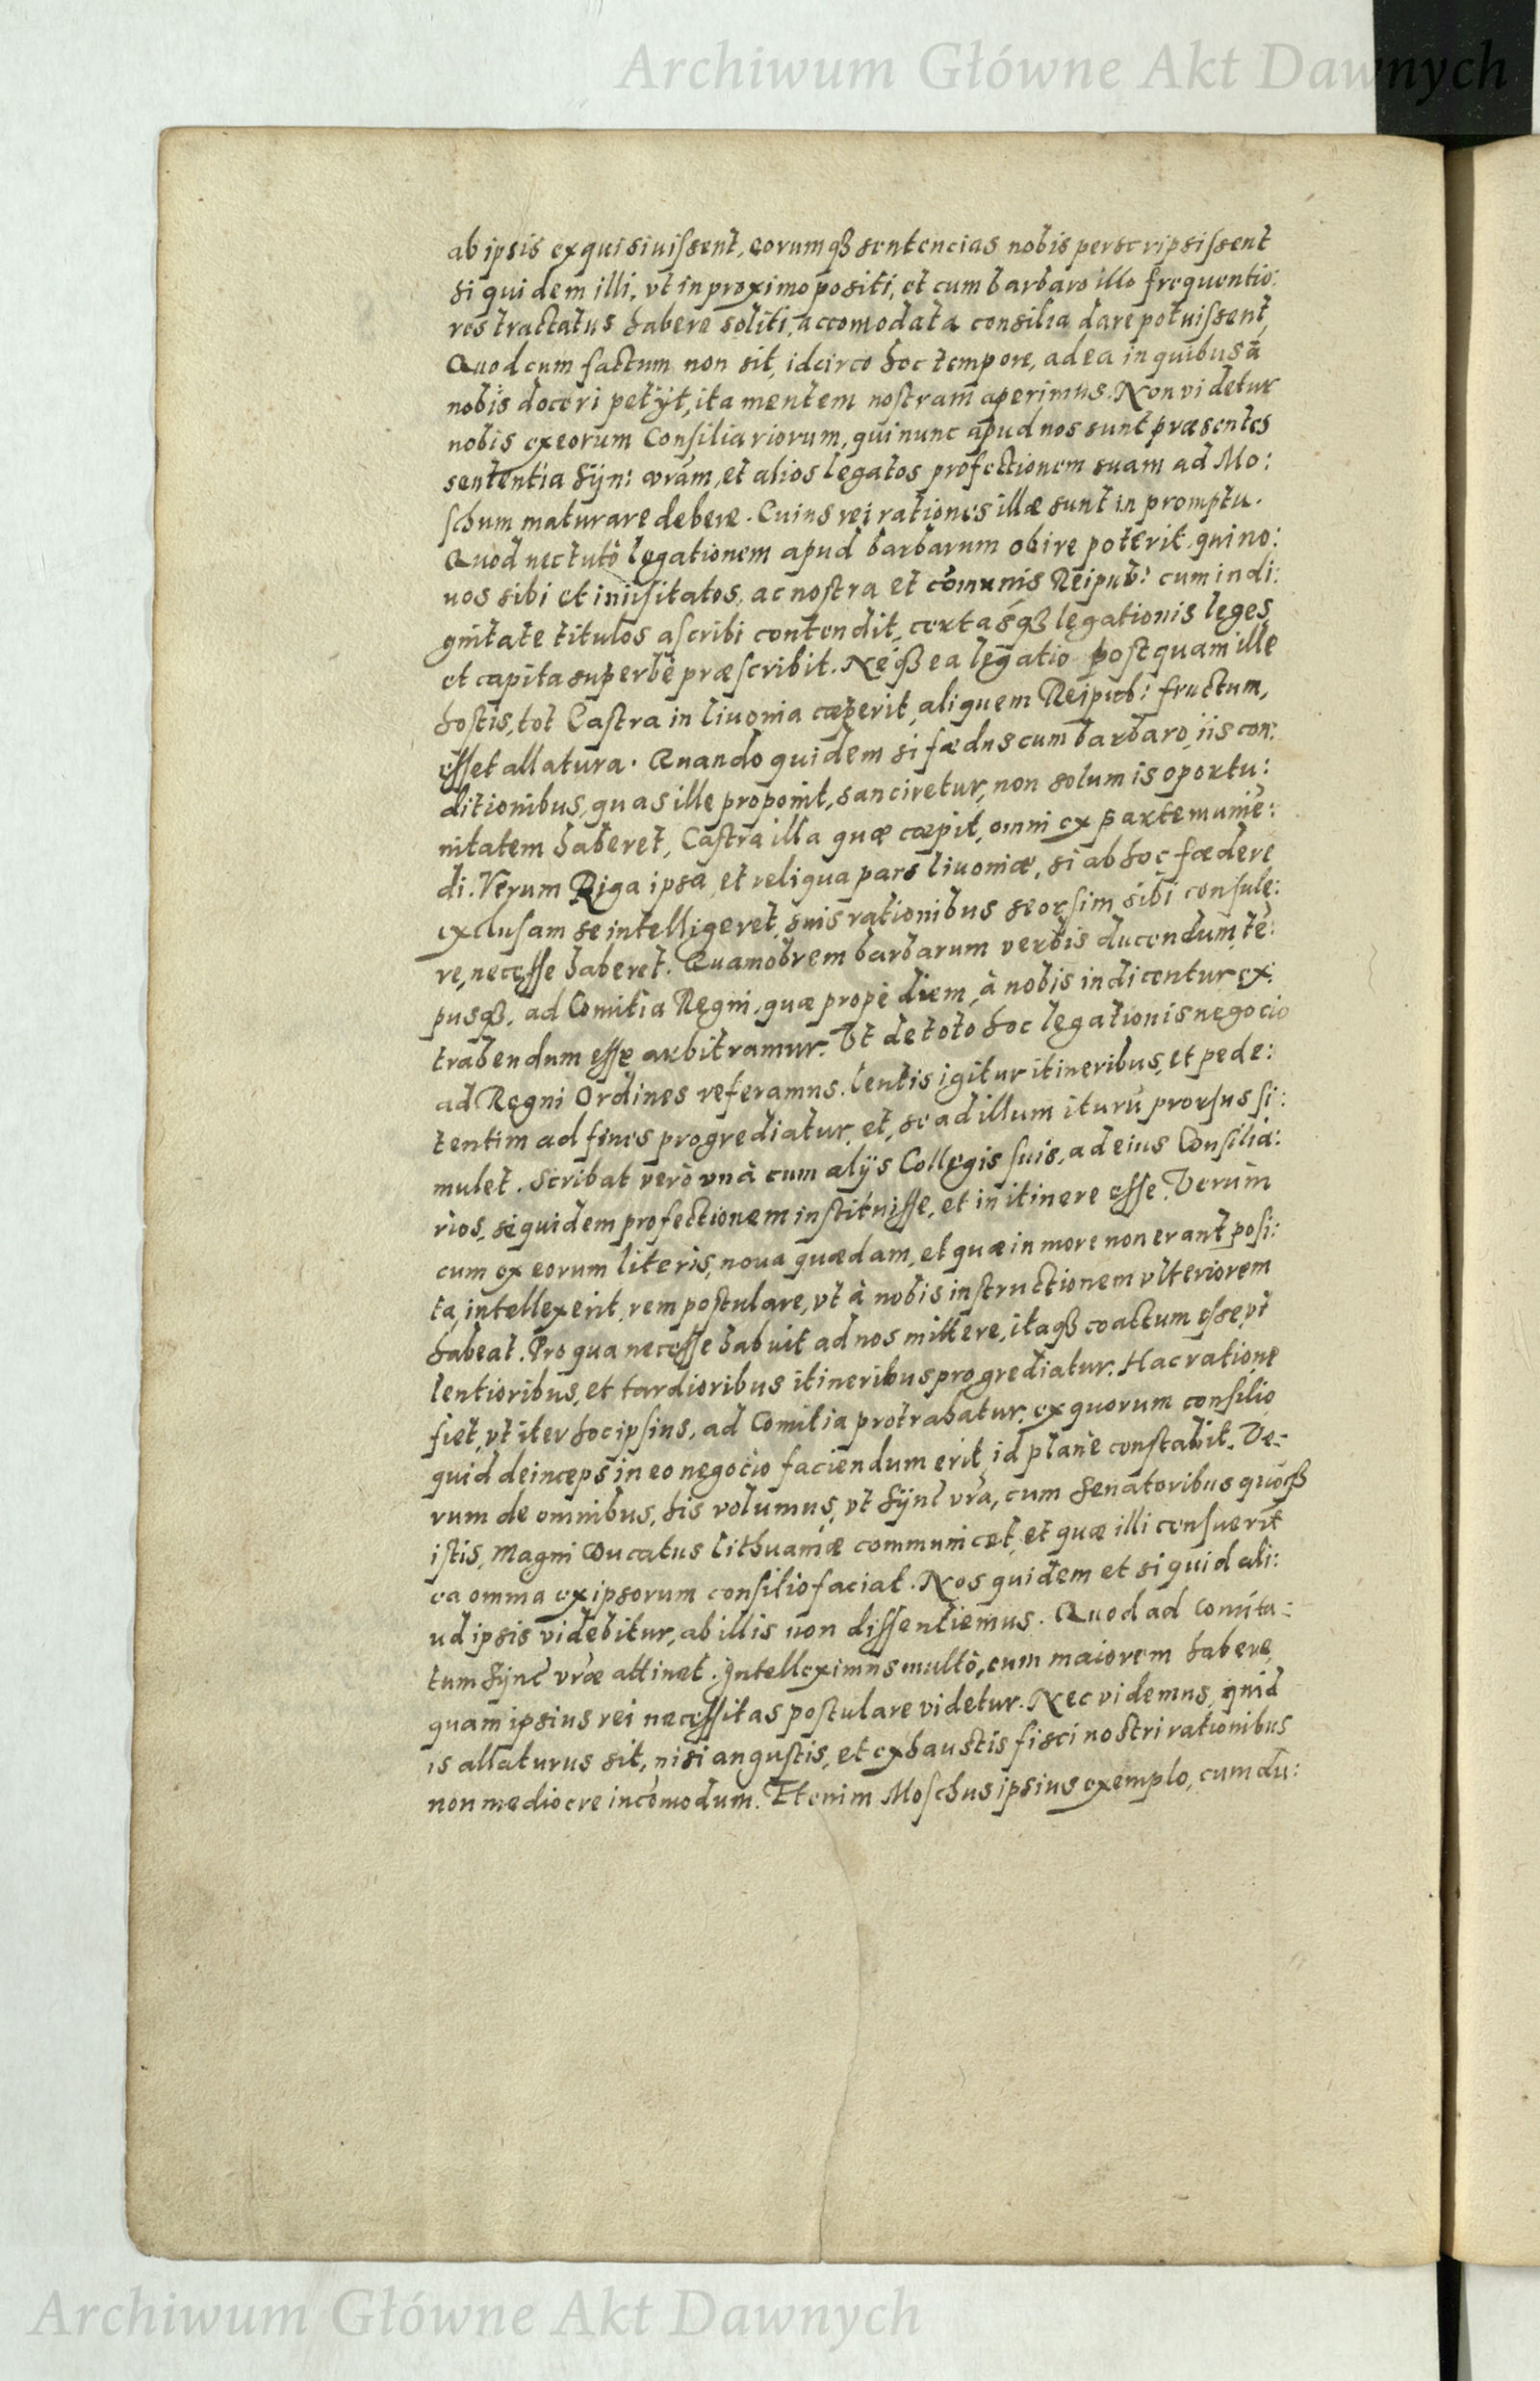 Archiwum Główne Akt Dawnych
ab ipsis exquisiuissent, eorumqȝ sentencias nobis perscripsissent
si quidem illi, vt in proximo positi, et cum barbaro illo frequentio:
res tractatus habere soliti, accomodata consilia dare potuissent,
Quod cum factum non sit, idcirco hoc tempore, ad ea in quibus à
nobis doceri petijt, ita mentem nostram aperimus. Non videtur
nobis ex eorum Consiliariorum, qui nunc apud nos sunt præsentes
sententia Syn: vram, et alios legatos profectionem suam ad Mo:
schum maturare debere. Cuius rei rationes illæ sunt in promptu.
Quod nec tutò legationem apud barbarum obire poterit, qui no:
uos sibi et inusitatos, ac nostra et comunis Reipub: cum indi:
gnitate titulos ascribi contendit, certasqȝ legationis leges
et capita superbè præscribit. Neqȝ ea legatio postquam ille
hostis, tot Castra in liuonia cæperit, aliquem Reipub: fructum,
esset allatura. Quando quidem si fædus cum barbaro, iis con:
ditionibus, quas ille proponit, sanciretur, non solum is oportu:
nitatem haberet, Castra illa quæ cæpit, omni ex parte munie:
di. Verum Riga ipsa, et reliqua pars liuoniæ, si ab hoc fædere
exclusam se intelligeret, suis rationibus seorsim sibi consule:
re, necesse haberet. Quamobrem barbarum verbis ducendum, te:
pusqȝ, ad Comitia Regni, quæ propè diem, à nobis indicentur ex:
trahendum esse arbitramur. Vt de toto hoc legationis negocio
ad Regni Ordines referamus. lentis igitur itineribus, et pede:
tentim ad fines progrediatur, et, se ad illum iturū prorsus si:
mulet. Scribat verò vnà cum alijs Collegis suis, ad eius Consilia:
rios, se quidem profectionem instituisse, et in itinere esse. Verùm
cum ex eorum literis, noua quædam, et quæ in more non erant posi:
ta, intellexerit, rem postulare, vt à nobis instructionem vlteriorem
habeat. Pro qua necesse habuit ad nos mittere, itaqȝ coactum esse, vt
lentioribus, et tardioribus itineribus progrediatur. Hac ratione
fiet, vt iter hoc ipsius, ad Comitia protrahatur, ex quorum consilio
quid deinceps in eo negocio faciendum erit, id planè constabit. Ve:
rum de omnibus, his volumus, vt Synć vra, cum Senatoribus quoqȝ
istis, Magni Ducatus lithuaniæ communicet, et quæ illi censuerīt
ea omnia ex ipsorum consilio faciat. Nos quidem et si quid ali:
ud ipsis videbitur, ab illis non dissentiemus. Quod ad comita:
tum Synć vræ attinet. Intelleximus multò, eum maiorem habere,
quam ipsius rei necessitas postulare videtur. Nec videmus, quid
is allaturus sit, nisi angustis, et exhaustis fisci nostri rationibus
non mediocre incōmodum. Etenim Moschus ipsius exemplo, cum du:
Archiwum Główne Akt Dawnych